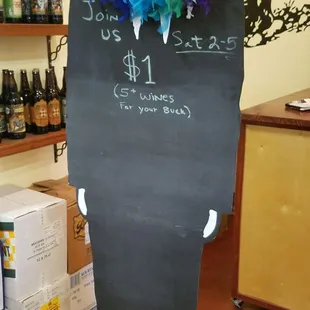 Join
US
Sat 2-5
$1
(5+ WINES
For your Buck)